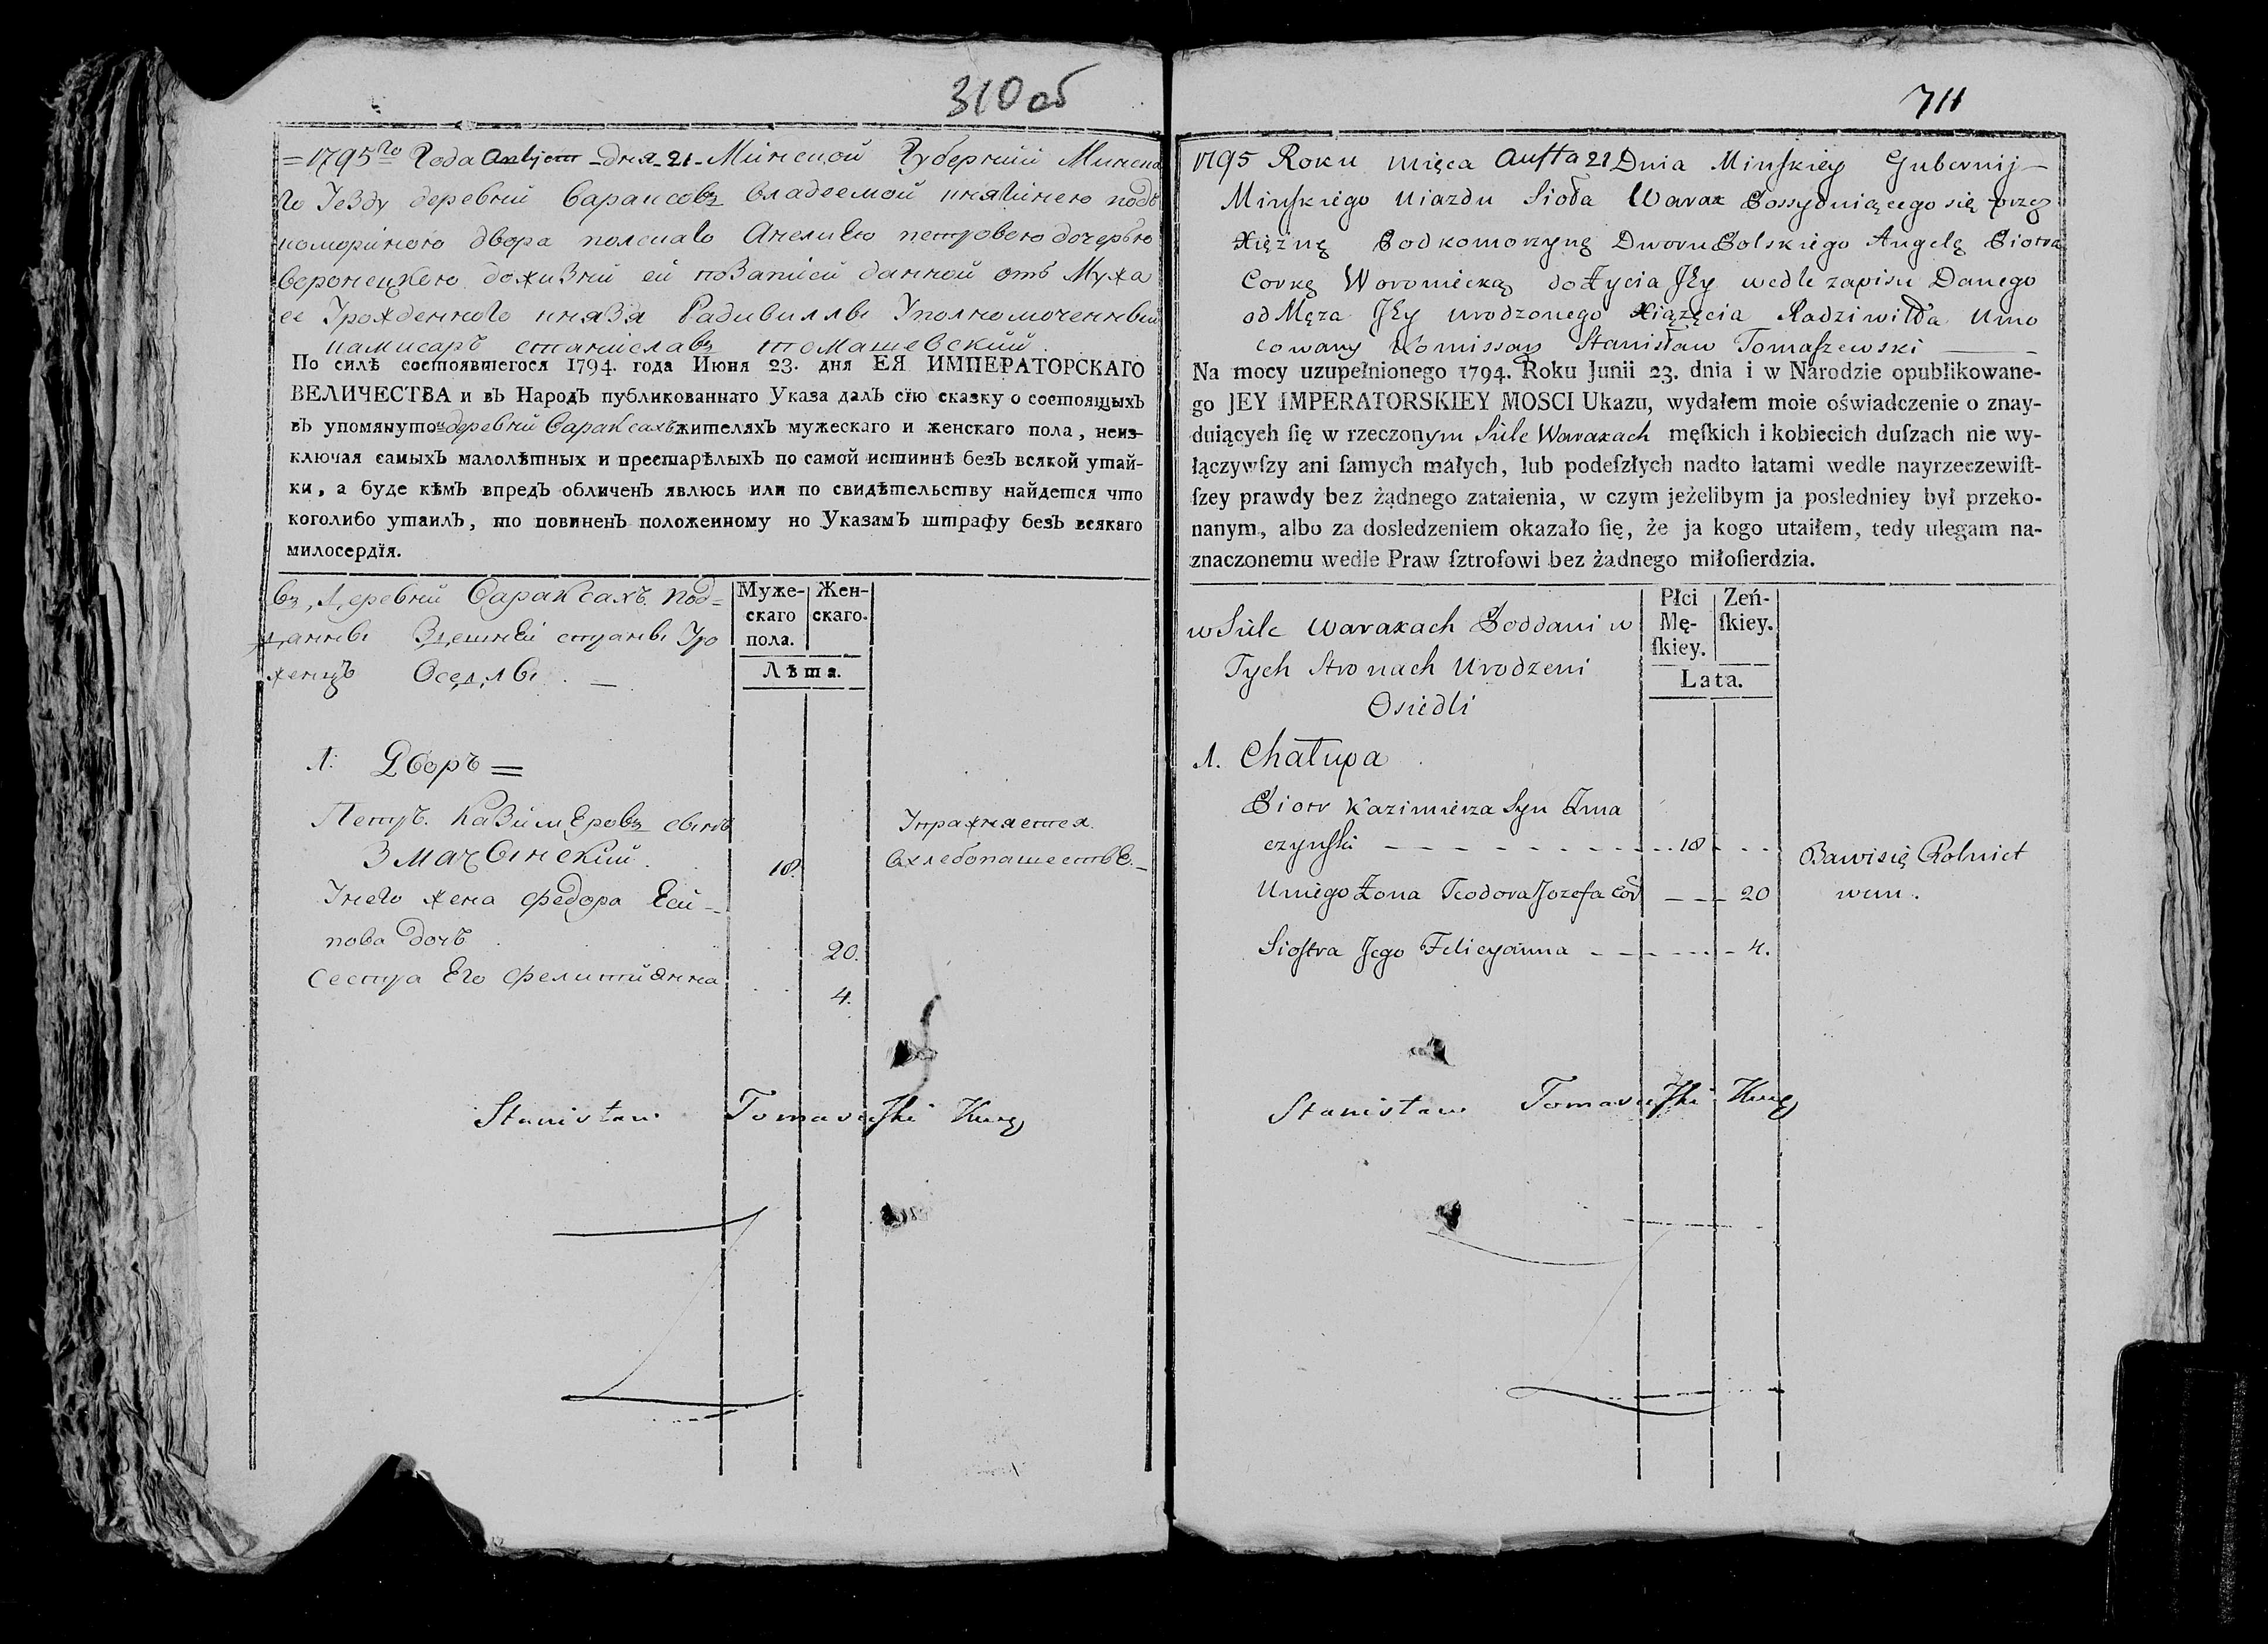 310 об
=1795го Года Августа дня 21 Минской Губерний Минска
го Уезду деревни Вараксовъ владеемой княгинею подъ
комориною двора полскаго Анелиею петровою дочерью
вероницкею доживнй ей позаписй данной отъ Мужа
ее Урожденного князя Радивиллы Уполномоченный
камисаръ станиславъ томашевский
По силѣ состоявшегося 1794. года Июня 23. дня ЕЯ ИМПЕРАТОРСКАГО
ВЕЛИЧЕСТВА и вЪ НародЪ публикованнаго Указа далЪ сїю сказку о состоящыхЪ
вЪ упомянуто деревни ВараксахЪ жителяхЪ мужескаго и женскаго пола, неиз-
ключая самыхЪ малолѣтныхъ и престарѣлыхЪ по самой истиннѣ безЪ всякой утай-
ки, а буде кѣмЪ впредЪ обличенЪ явлюсь или по свидѣтельству найдется что
коголибо утаилЪ, то повиненЪ положенному по УказамЪ штрафу безЪ всякаго
милосердїя.
въ Деревни Вараксахъ Под=
данны Здешней страны Уро
женцъ Оседлы —
Муже- Жен-
скаго скаго.
пола.
Лѣта.
1: Дворъ =
Петръ Казимеровъ сынъ
Змачынский 18.
Упражняется
вхлебопашестве. —
Унего жена федора Еси-
пова дочъ 20.
Сестра Его фелитиянна 4.
Stanisław Tomaszewski Kmg
711
1795 Roku mięca Austa 21 Dnia Minskiey Gubernij —
Minskiego Ujazdu Sioła Warax Possydujące̜go się przez
Xiężnę Podkomorzynę Dworu Polskiego Angelę Piotra
Corkę Woroniecką dożycia Jey wedle zapisu Danego
od Męża Jey urodzonego Xiążęcia Radziwiłła Umo
cowany Komissarz Stanisław Tomaszewski —
Na mocy uzupełnionego 1794. Roku Junii 23. dnia i w Narodzie opublikowane-
go JEY IMPERATORSKIEY MOSCI Ukazu, wydałem moie oświadczenie o znay-
duiących ſię w rzeczonym Siele Waraxach męſkich i kobiecich duſzach nie wy-
łączywſzy ani ſamych małych, lub podeſzłych nadto latami wedle nayrzeczewiſt-
ſzey prawdy bez żądnego zataienia, w czym jeżelibym ja posledniey był przeko-
nanym, albo za dosledzeniem okazało ſię, że ja kogo utaiłem, tedy ulegam na-
znaczonemu wedle Praw ſztrofowi bez żadnego miłoſierdzia.
w Siele Waraxach Poddani w
Tych Stronach Urodzeni
Osiedli
Płci Zeń-
Mę- ſkiey.
ſkiey.
Lata.
1. Chałupa
Piotr Kazimierza Syn Zma
czynski 18
Bawi się Rolnict
wem.
U niego Żona Teodora Jozefa Cor 20
Siostra Jego Felicyanna 4.
Stanisław Tomaszewski Kmg